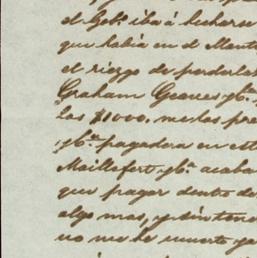 el Gobº iba á hecharse
que habia en el Monte
el riezgo de perderlas
Graham Geaves
las $1000. me las pre
pagadera en est
Maillefert acaba
que pagar dentro de
algo mas, y sin tene
no me he muerto ya